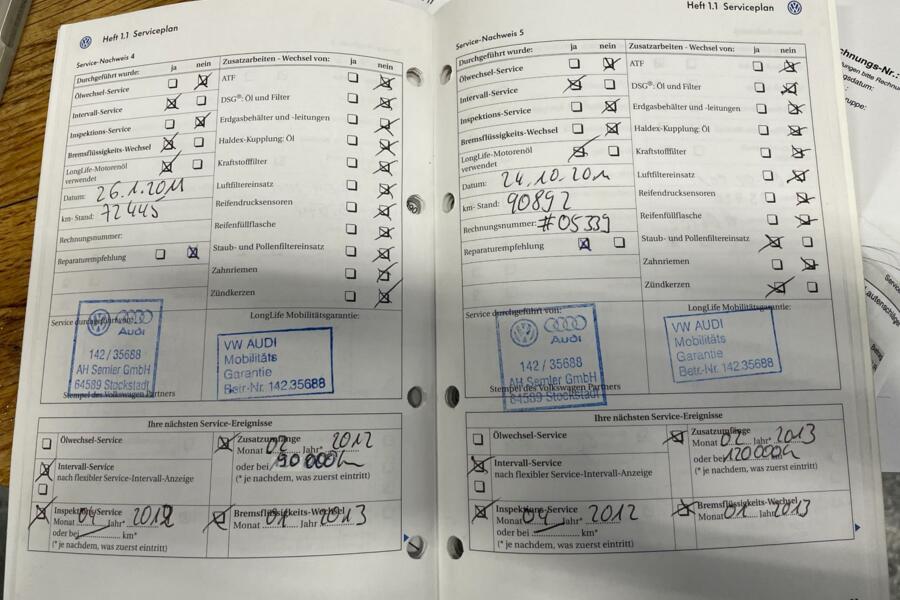 Heft 1.1 Serviceplan
Service-Nachweis 4
Durchgeführt wurde: ja nein
Ölwechsel-Service
Intervall-Service
Inspektions-Service
Bremsflüssigkeits-Wechsel
LongLife-Motorenöl
verwendet
Datum: 26.1.2011
km- Stand: 72445
Rechnungsnummer:
Reparaturempfehlung
Zusatzarbeiten - Wechsel von: ja nein
ATF
DSG®: Öl und Filter
Erdgasbehälter und -leitungen
Haldex-Kupplung: Öl
Kraftstofffilter
Luftfiltereinsatz
Reifendrucksensoren
Reifenfüllflasche
Staub- und Pollenfiltereinsatz
Zahnriemen
Zündkerzen
Service durchgeführt von:
Audi
142 / 35688
AH Semler GmbH
64589 Stockstadt
Stempel des Volkswagen Partners
LongLife Mobilitätsgarantie:
VW AUDI
Mobilitäts
Garantie
Betr-Nr. 142.35688
Ihre nächsten Service-Ereignisse
Ölwechsel-Service
Intervall-Service
nach flexibler Service-Intervall-Anzeige
Inspektions-Service
Monat 04 Jahr* 2012
oder bei km*
(* je nachdem, was zuerst eintritt)
Zusatzumfänge
Monat 02 Jahr* 2012
oder bei 90 000 km
(* je nachdem, was zuerst eintritt)
Bremsflüssigkeits-Wechsel
Monat 01 Jahr 2013
Heft 1.1 Serviceplan
Service-Nachweis 5
Durchgeführt wurde: ja nein
Ölwechsel-Service
Intervall-Service
Inspektions-Service
Bremsflüssigkeits-Wechsel
LongLife-Motorenöl
verwendet
Datum: 24.10.2011
km- Stand: 90892
Rechnungsnummer: #05339
Reparaturempfehlung
Zusatzarbeiten - Wechsel von: ja nein
ATF
DSG®: Öl und Filter
Erdgasbehälter und -leitungen
Haldex-Kupplung: Öl
Kraftstofffilter
Luftfiltereinsatz
Reifendrucksensoren
Reifenfüllflasche
Staub- und Pollenfiltereinsatz
Zahnriemen
Zündkerzen
Service durchgeführt von:
Audi
142 / 35688
AH Semler GmbH
64589 Stockstadt
Stempel des Volkswagen Partners
LongLife Mobilitätsgarantie:
VW AUDI
Mobilitäts
Garantie
Betr-Nr. 142.35688
Ihre nächsten Service-Ereignisse
Ölwechsel-Service
Intervall-Service
nach flexibler Service-Intervall-Anzeige
Inspektions-Service
Monat 04 Jahr* 2012
oder bei km*
(* je nachdem, was zuerst eintritt)
Zusatzumfänge
Monat 02 Jahr* 2013
oder bei 120000 km
(* je nachdem, was zuerst eintritt)
Bremsflüssigkeits-Wechsel
Monat 01 Jahr 2013